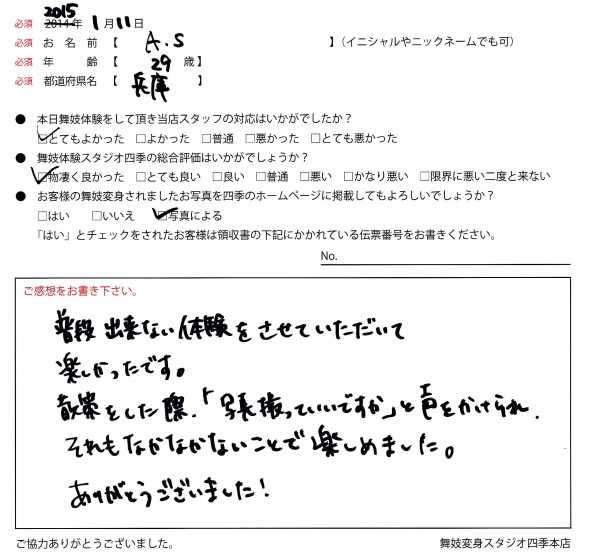 2015
必須 2014年 1月11日
必須 お名前【 A.S 】(イニシャルやニックネームでも可)
必須 年齢【 29 歳】
必須 都道府県名【 兵庫 】
● 本日舞妓体験をして頂き当店スタッフの対応はいかがでしたか?
☑とてもよかった □よかった □普通 □悪かった □とても悪かった
● 舞妓体験スタジオ四季の総合評価はいかがでしょうか?
☑物凄く良かった □とても良い □良い □普通 □悪い □かなり悪い □限界に悪い二度と来ない
● お客様の舞妓変身されましたお写真を四季のホームページに掲載してもよろしいでしょうか?
□はい □いいえ ☑写真による
「はい」とチェックをされたお客様は領収書の下記にかかれている伝票番号をお書きください。
No.
ご感想をお書き下さい。
普段出来ない体験をさせていただいて
楽しかったです。
散策をした際、「写真撮っていいですか」と声をかけられ、
それもなかなかないことで楽しめました。
ありがとうございました!
ご協力ありがとうございました。 舞妓変身スタジオ四季本店